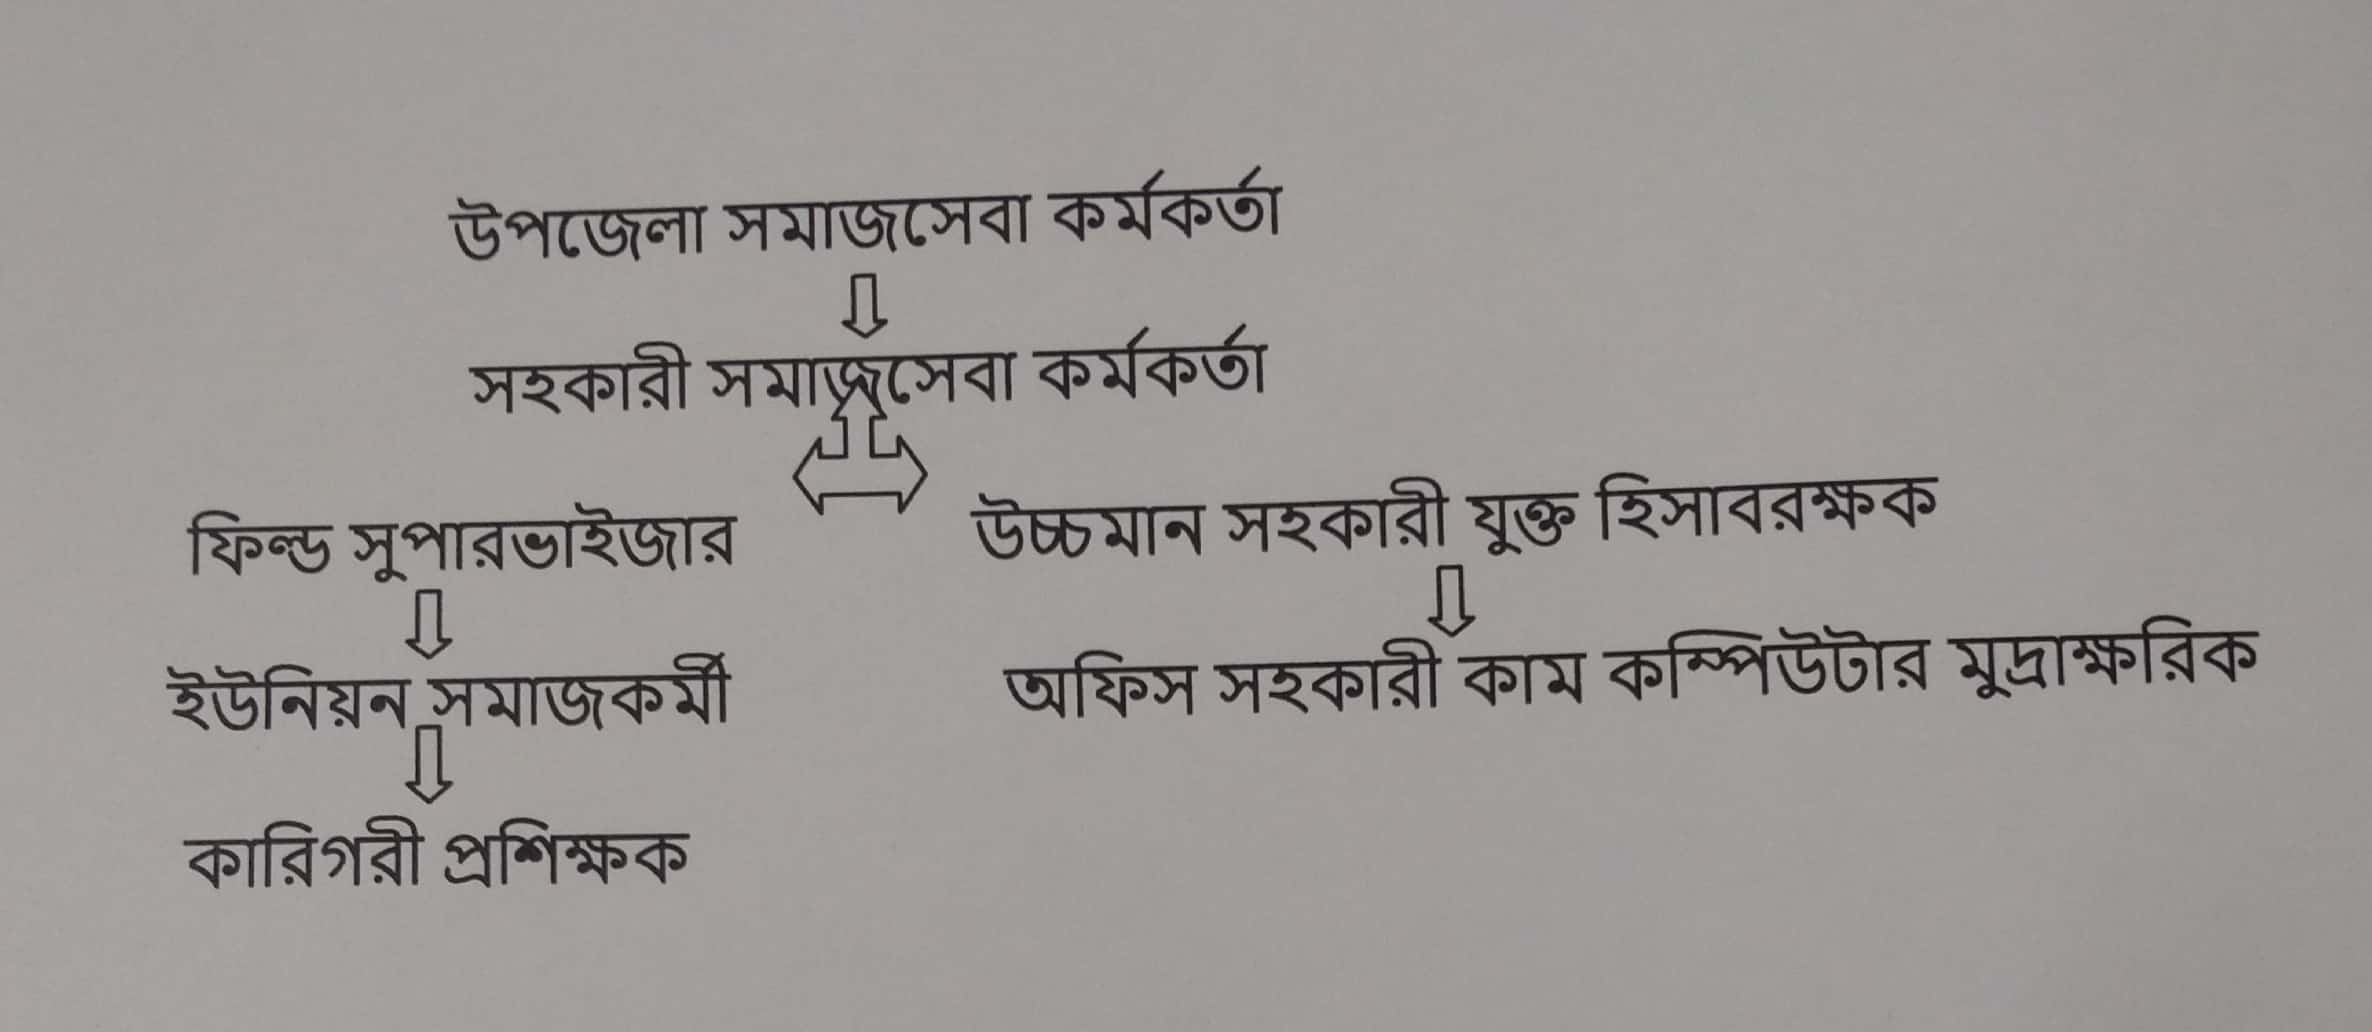 উপজেলা সমাজসেবা কর্মকর্তা
সহকারী সমাজসেবা কর্মকর্তা
ফিল্ড সুপারভাইজার
উচ্চমান সহকারী যুক্ত হিসাবরক্ষক
ইউনিয়ন সমাজকর্মী
অফিস সহকারী কাম কম্পিউটার মুদ্রাক্ষরিক
কারিগরী প্রশিক্ষক